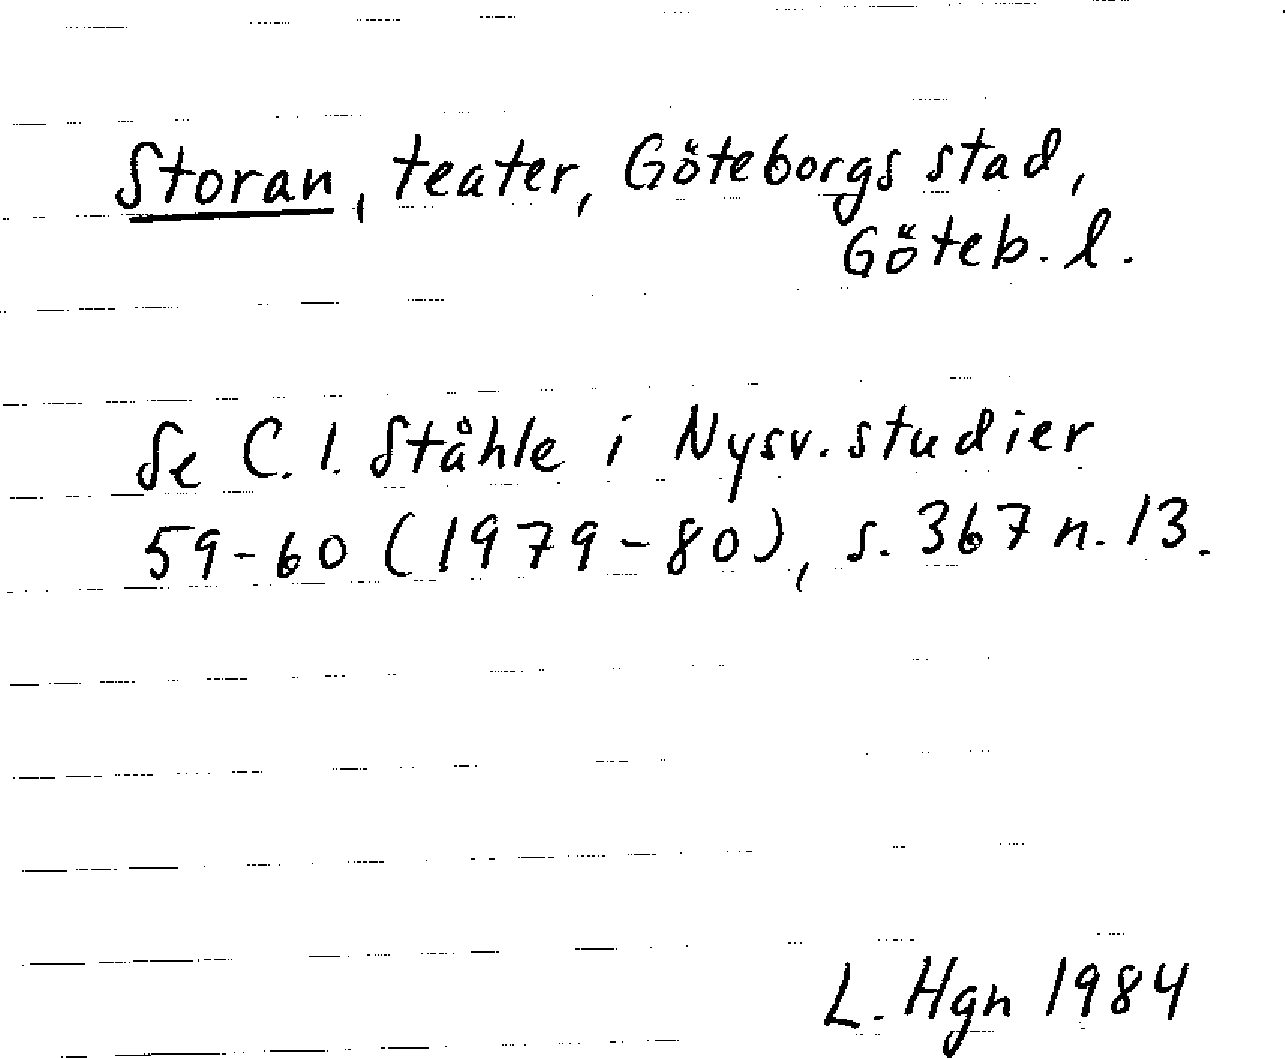 Storan, teater, Göteborgs stad,
Göteb. l.
Se C. I. Ståhle i Nysv. studier
59-60 (1979-80), s. 367 n. 13.
L. Hgn 1984